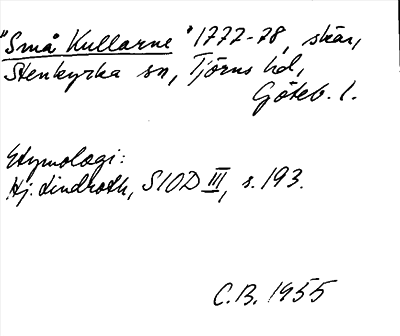 "Små Kullarne" 1777-78, skär,
Stenkyrka sn, Tjörns hd,
Göteb. l.
Etymologi:
Hj. Lindroth, SIOD III, s. 193.
C.B. 1955